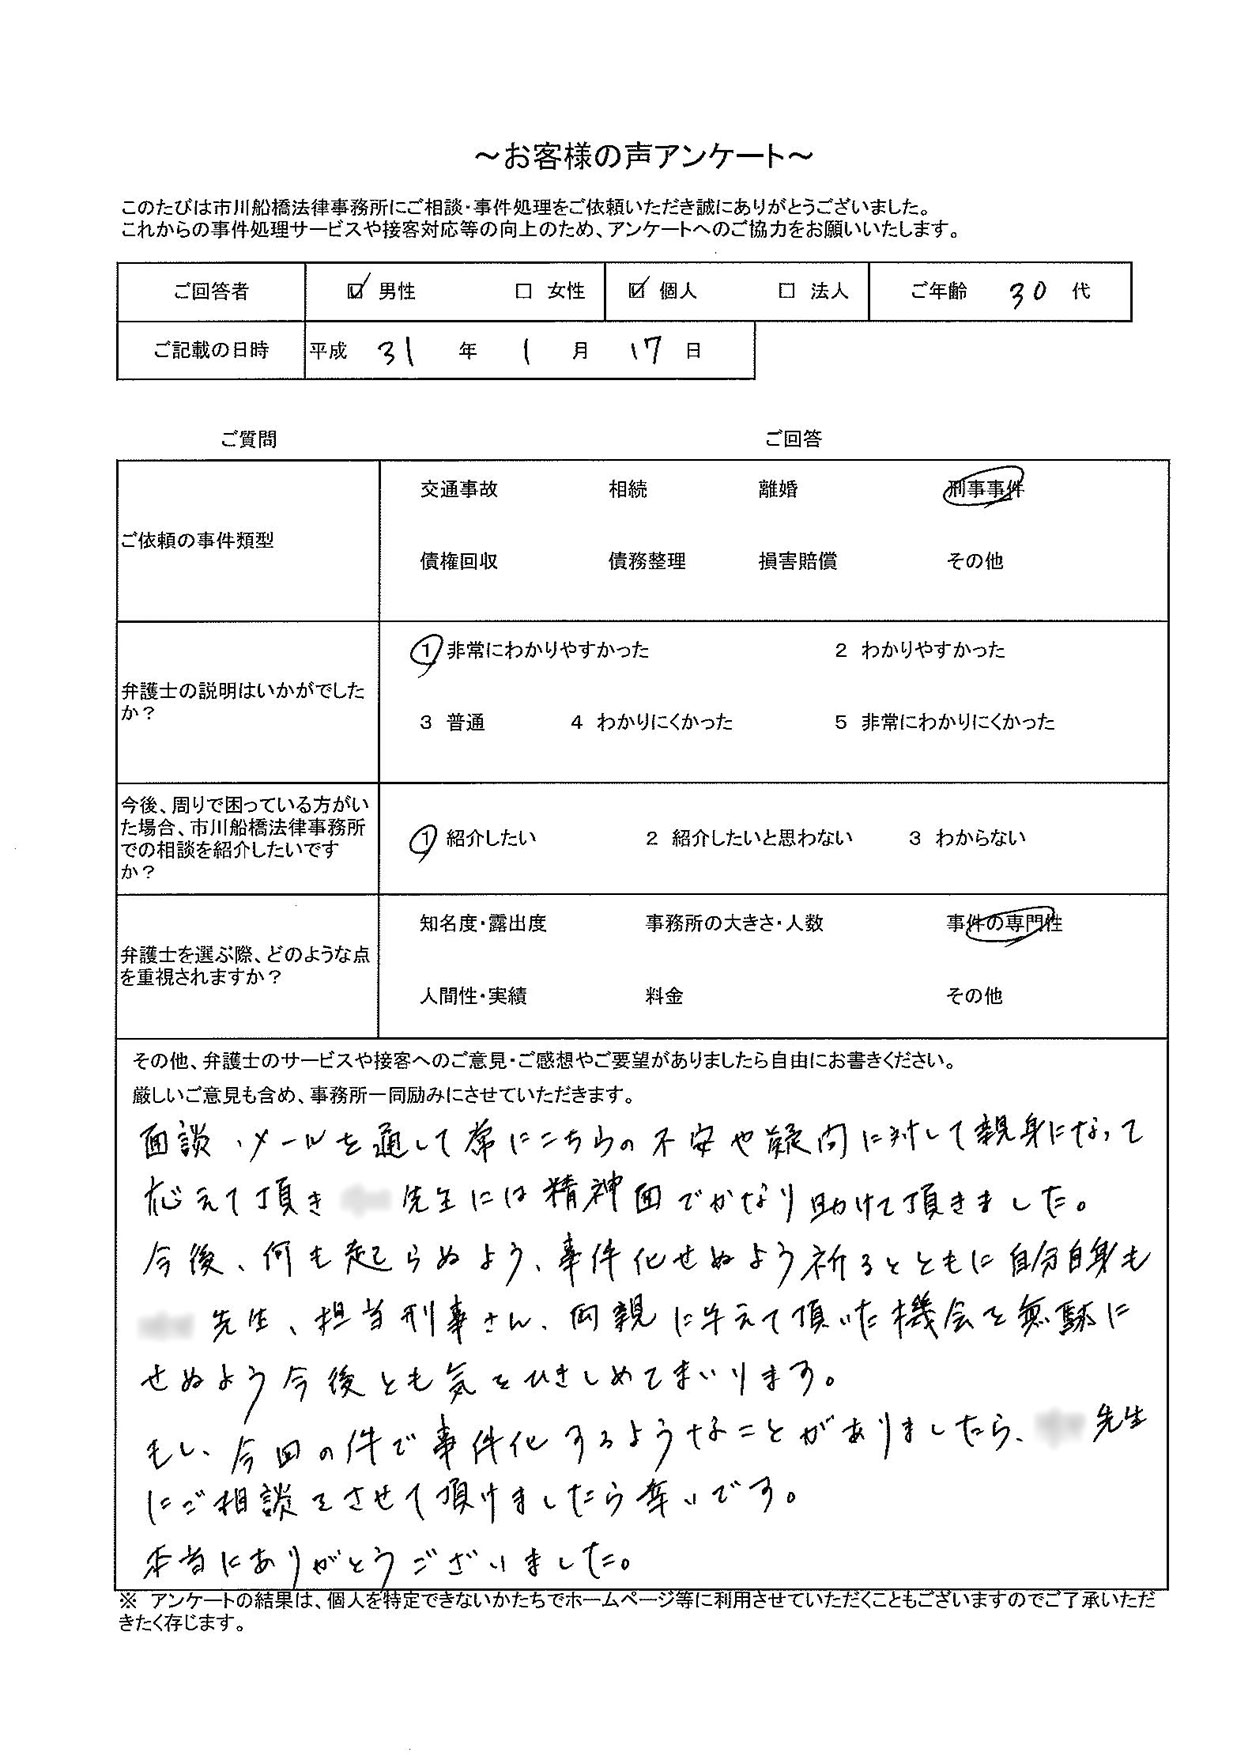 ～お客様の声アンケート～
このたびは市川船橋法律事務所にご相談・事件処理をご依頼いただき誠にありがとうございました。
これからの事件処理サービスや接客対応等の向上のため、アンケートへのご協力をお願いいたします。
ご回答者 ☑ 男性 □ 女性 ☑ 個人 □ 法人 ご年齢 30 代
ご記載の日時 平成 31 年 1 月 17 日
ご質問 ご回答
ご依頼の事件類型
交通事故 相続 離婚 刑事事件
債権回収 債務整理 損害賠償 その他
弁護士の説明はいかがでした
か？
1 非常にわかりやすかった 2 わかりやすかった
3 普通 4 わかりにくかった 5 非常にわかりにくかった
今後、周りで困っている方がい
た場合、市川船橋法律事務所
での相談を紹介したいです
か？
1 紹介したい 2 紹介したいと思わない 3 わからない
弁護士を選ぶ際、どのような点
を重視されますか？
知名度・露出度 事務所の大きさ・人数 事件の専門性
人間性・実績 料金 その他
その他、弁護士のサービスや接客へのご意見・ご感想やご要望がありましたら自由にお書きください。
厳しいご意見も含め、事務所一同励みにさせていただきます。
面談、メールを通して常にこちらの不安や疑問に対して親身になって
応えて頂き 先生には精神面でかなり助けて頂きました。
今後、何も起こらぬよう、事件化せぬよう祈るとともに自分自身も
先生、担当刑事さん、両親に与えて頂いた機会を無駄に
せぬよう今後とも気をひきしめてまいります。
もし、今回の件で事件化するようなことがありましたら、 先生
にご相談をさせて頂けましたら幸いです。
本当にありがとうございました。
※ アンケートの結果は、個人を特定できないかたちでホームページ等に利用させていただくこともございますのでご了承いただ
きたく存じます。